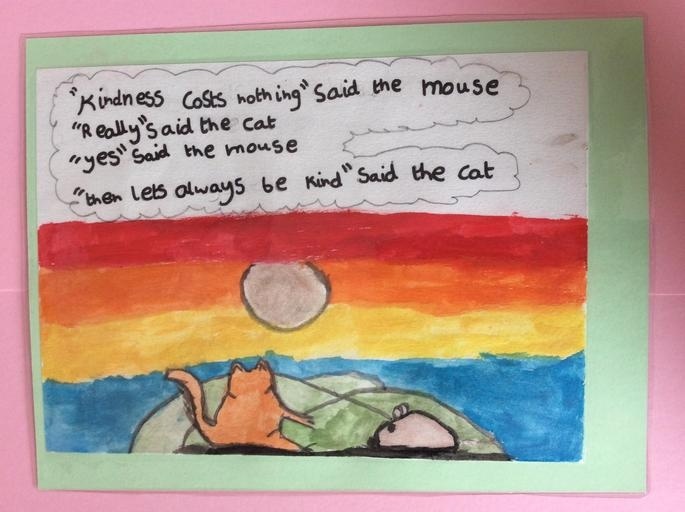 "Kindness costs nothing" said the mouse
"Really" said the cat
"yes" said the mouse
"then lets always be kind" said the cat